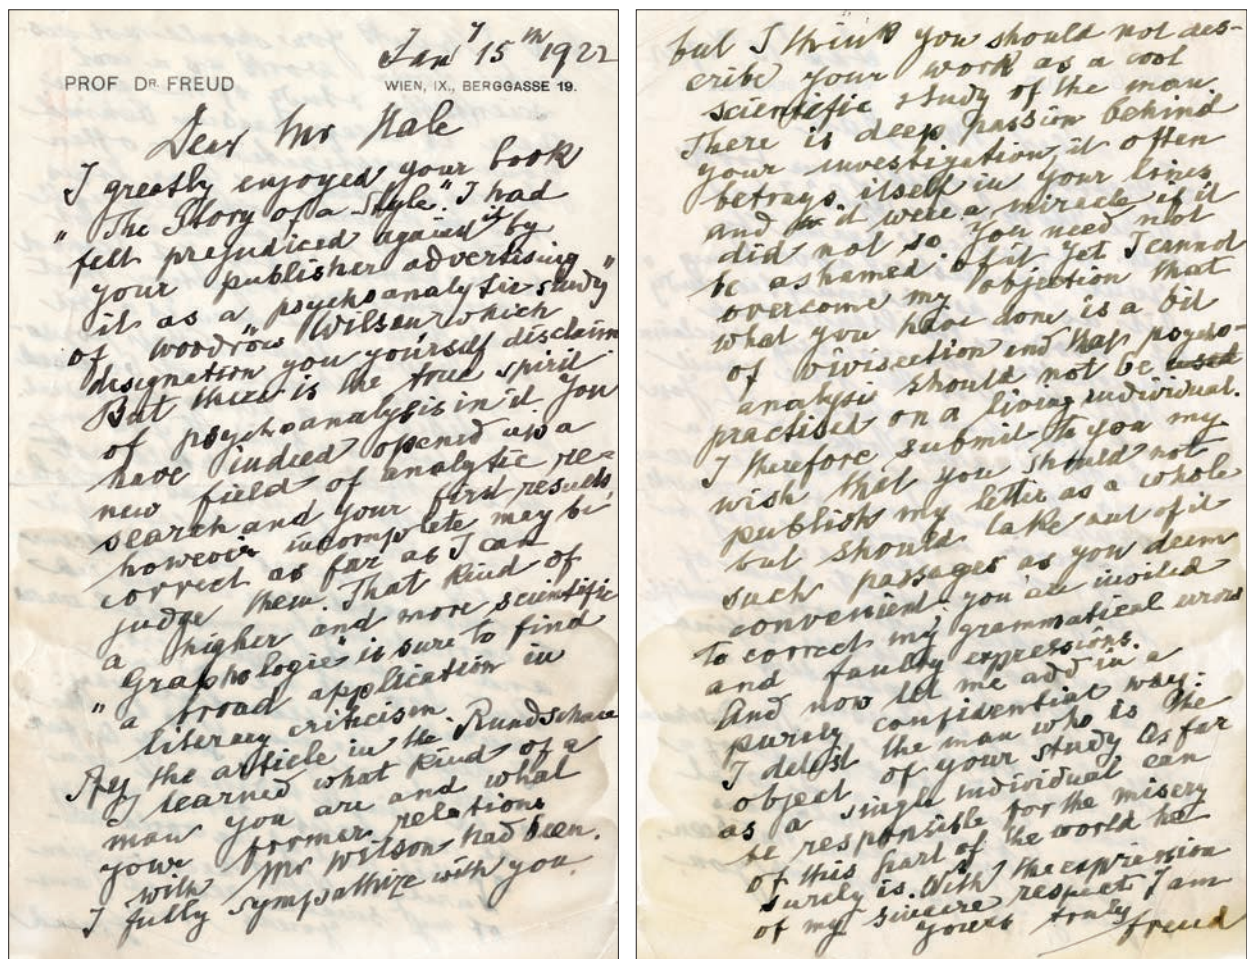 Jany 15th 1922
PROF DR. FREUD WIEN, IX., BERGGASSE 19.
Dear Mr Hale
I greatly enjoyed your book
"The Story of a Style". I had
felt prejudiced against it by
your publisher advertising
it as a psychoanalytic study"
of Woodrow Wilson which
designation you yourself disclaim
But there is the true spirit
of psychoanalysis in it. You
have indeed opened up a
new field of analytic re-
search and your first results,
however incomplete may be
correct as far as I can
judge them. That kind of
a higher and more scientific
"Graphologie" is sure to find
a broad application in
literary criticism.
By the article in the Rundschau
I learned what kind of a
man you are and what
your former relations
with Mr Wilson had been.
I fully sympathize with you.
but I think you should not des-
cribe your work as a cool
scientific study of the man
There is deep passion behind
your investigation, it often
betrays itself in your lines
and it were a miracle if it
did not so. You need not
be ashamed of it. Yet I cannot
overcome my objection that
what you have done is a bit
of vivisection and that psycho-
analysis should not be used
practised on a living individual.
I therefore submit to you my
wish that you should not
publish my letter as a whole
but should take out of it
such passages as you deem
convenient. You are invited
to correct my grammatical errors
and faulty expressions.
And now let me add in a
purely confidential way:
I detest the man who is the
object of your study. As far
as a single individual can
be responsible for the misery
of this part of the world he
surely is. With the expression
of my sincere respect I am
yours truly
Freud